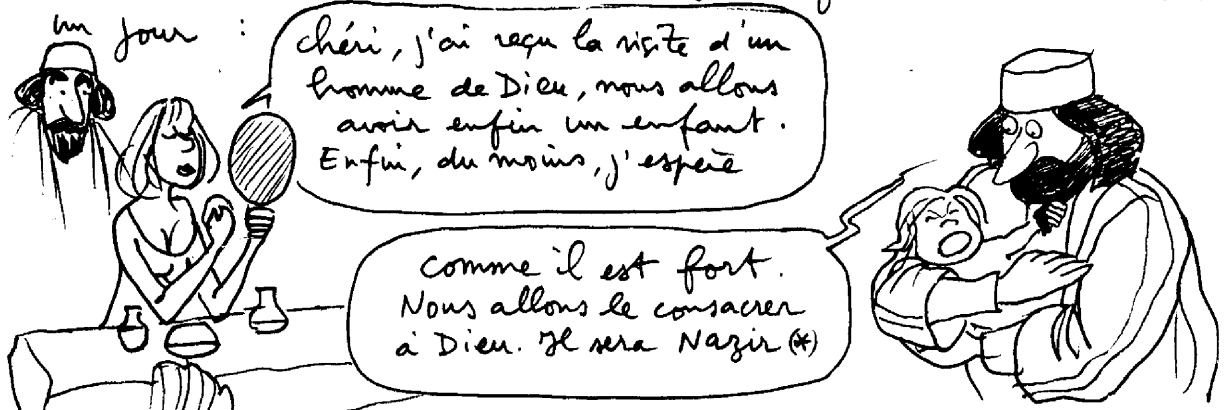 un jour :
chéri, j'ai reçu la visite d'un
homme de Dieu, nous allons
avoir enfin un enfant.
Enfin, du moins, j'espère
comme il est fort.
Nous allons le consacrer
à Dieu. Il sera Nazir (*)